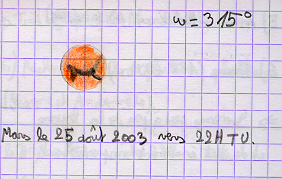 ω = 315°
Mars le 25 août 2003 vers 22H TU.